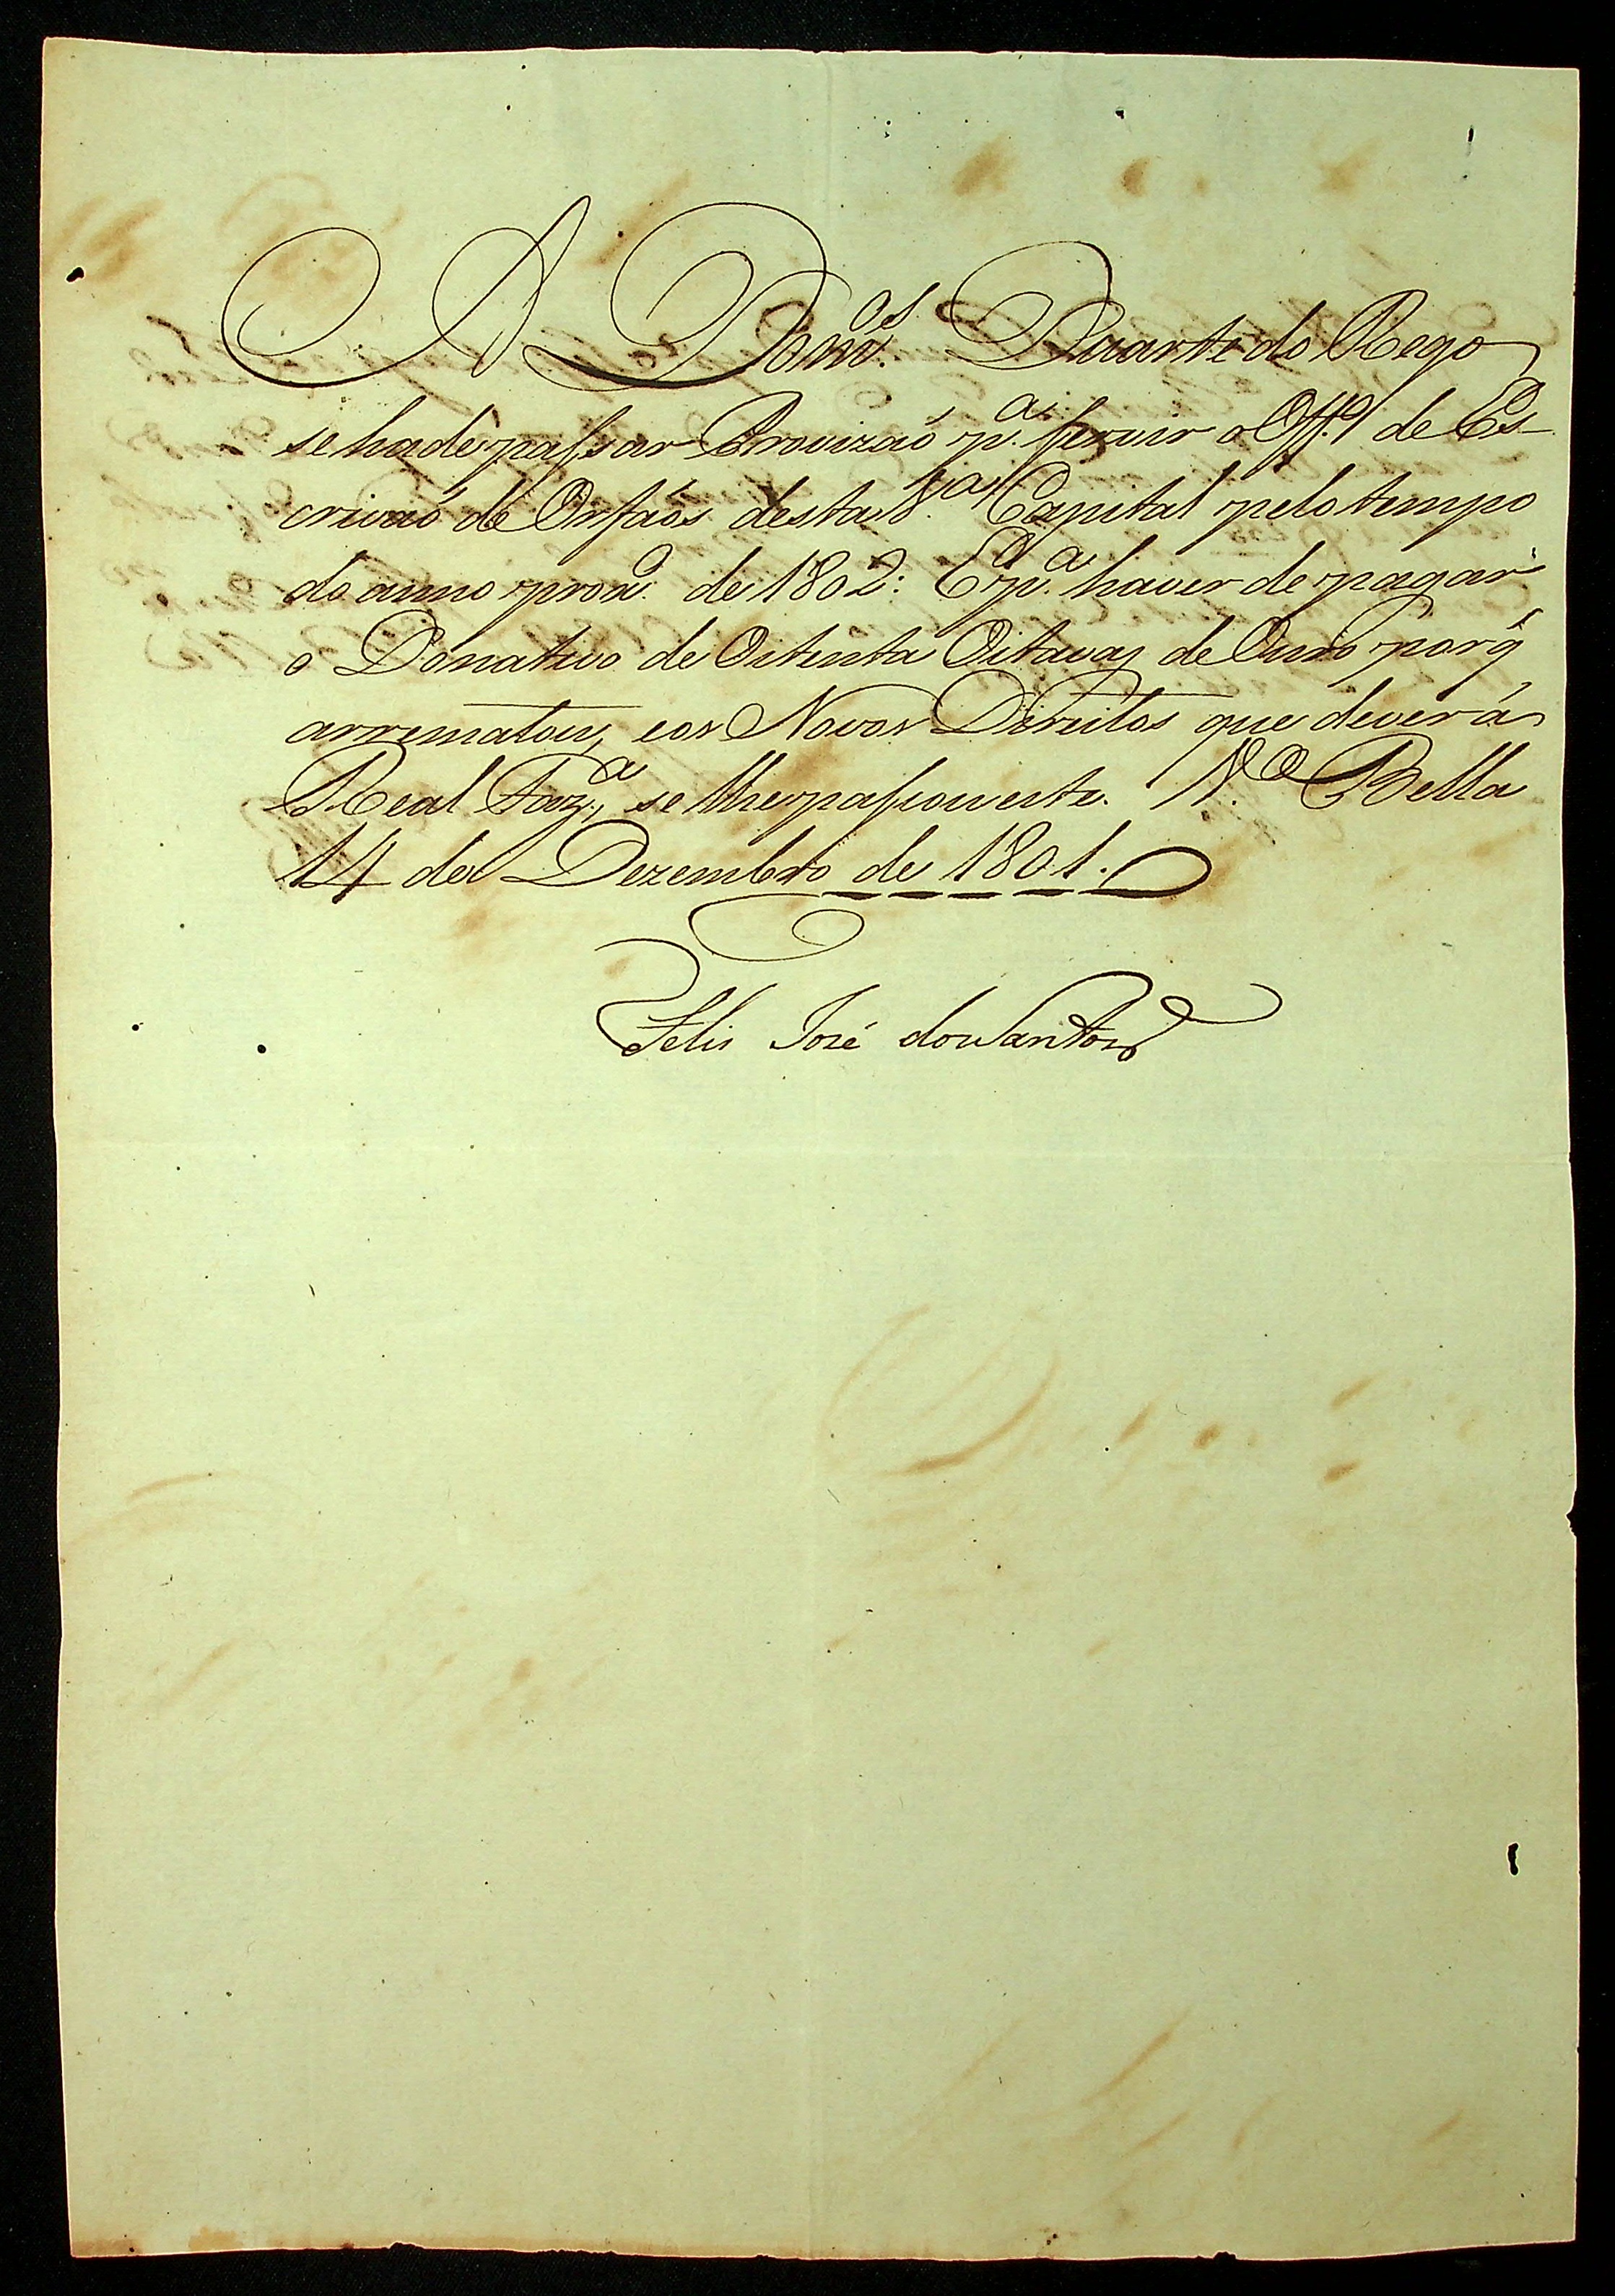 A Dom.os Duarte do Rego
se hade passar Provizaõ p.a servir o Off.o de Es-
crivaõ de Orfaõs desta V.a Capital pelo tempo
do anno prox.o de 1802: E p.a haver de pagar
o Donativo de Oitenta Oitavas de Ouro porq̃
arrematou, e os Novos Direitos que dever á
Real Faz.a, se lhe passou este. V.a Bella
14 de Dezembro de 1801.
Felis José dos Santos